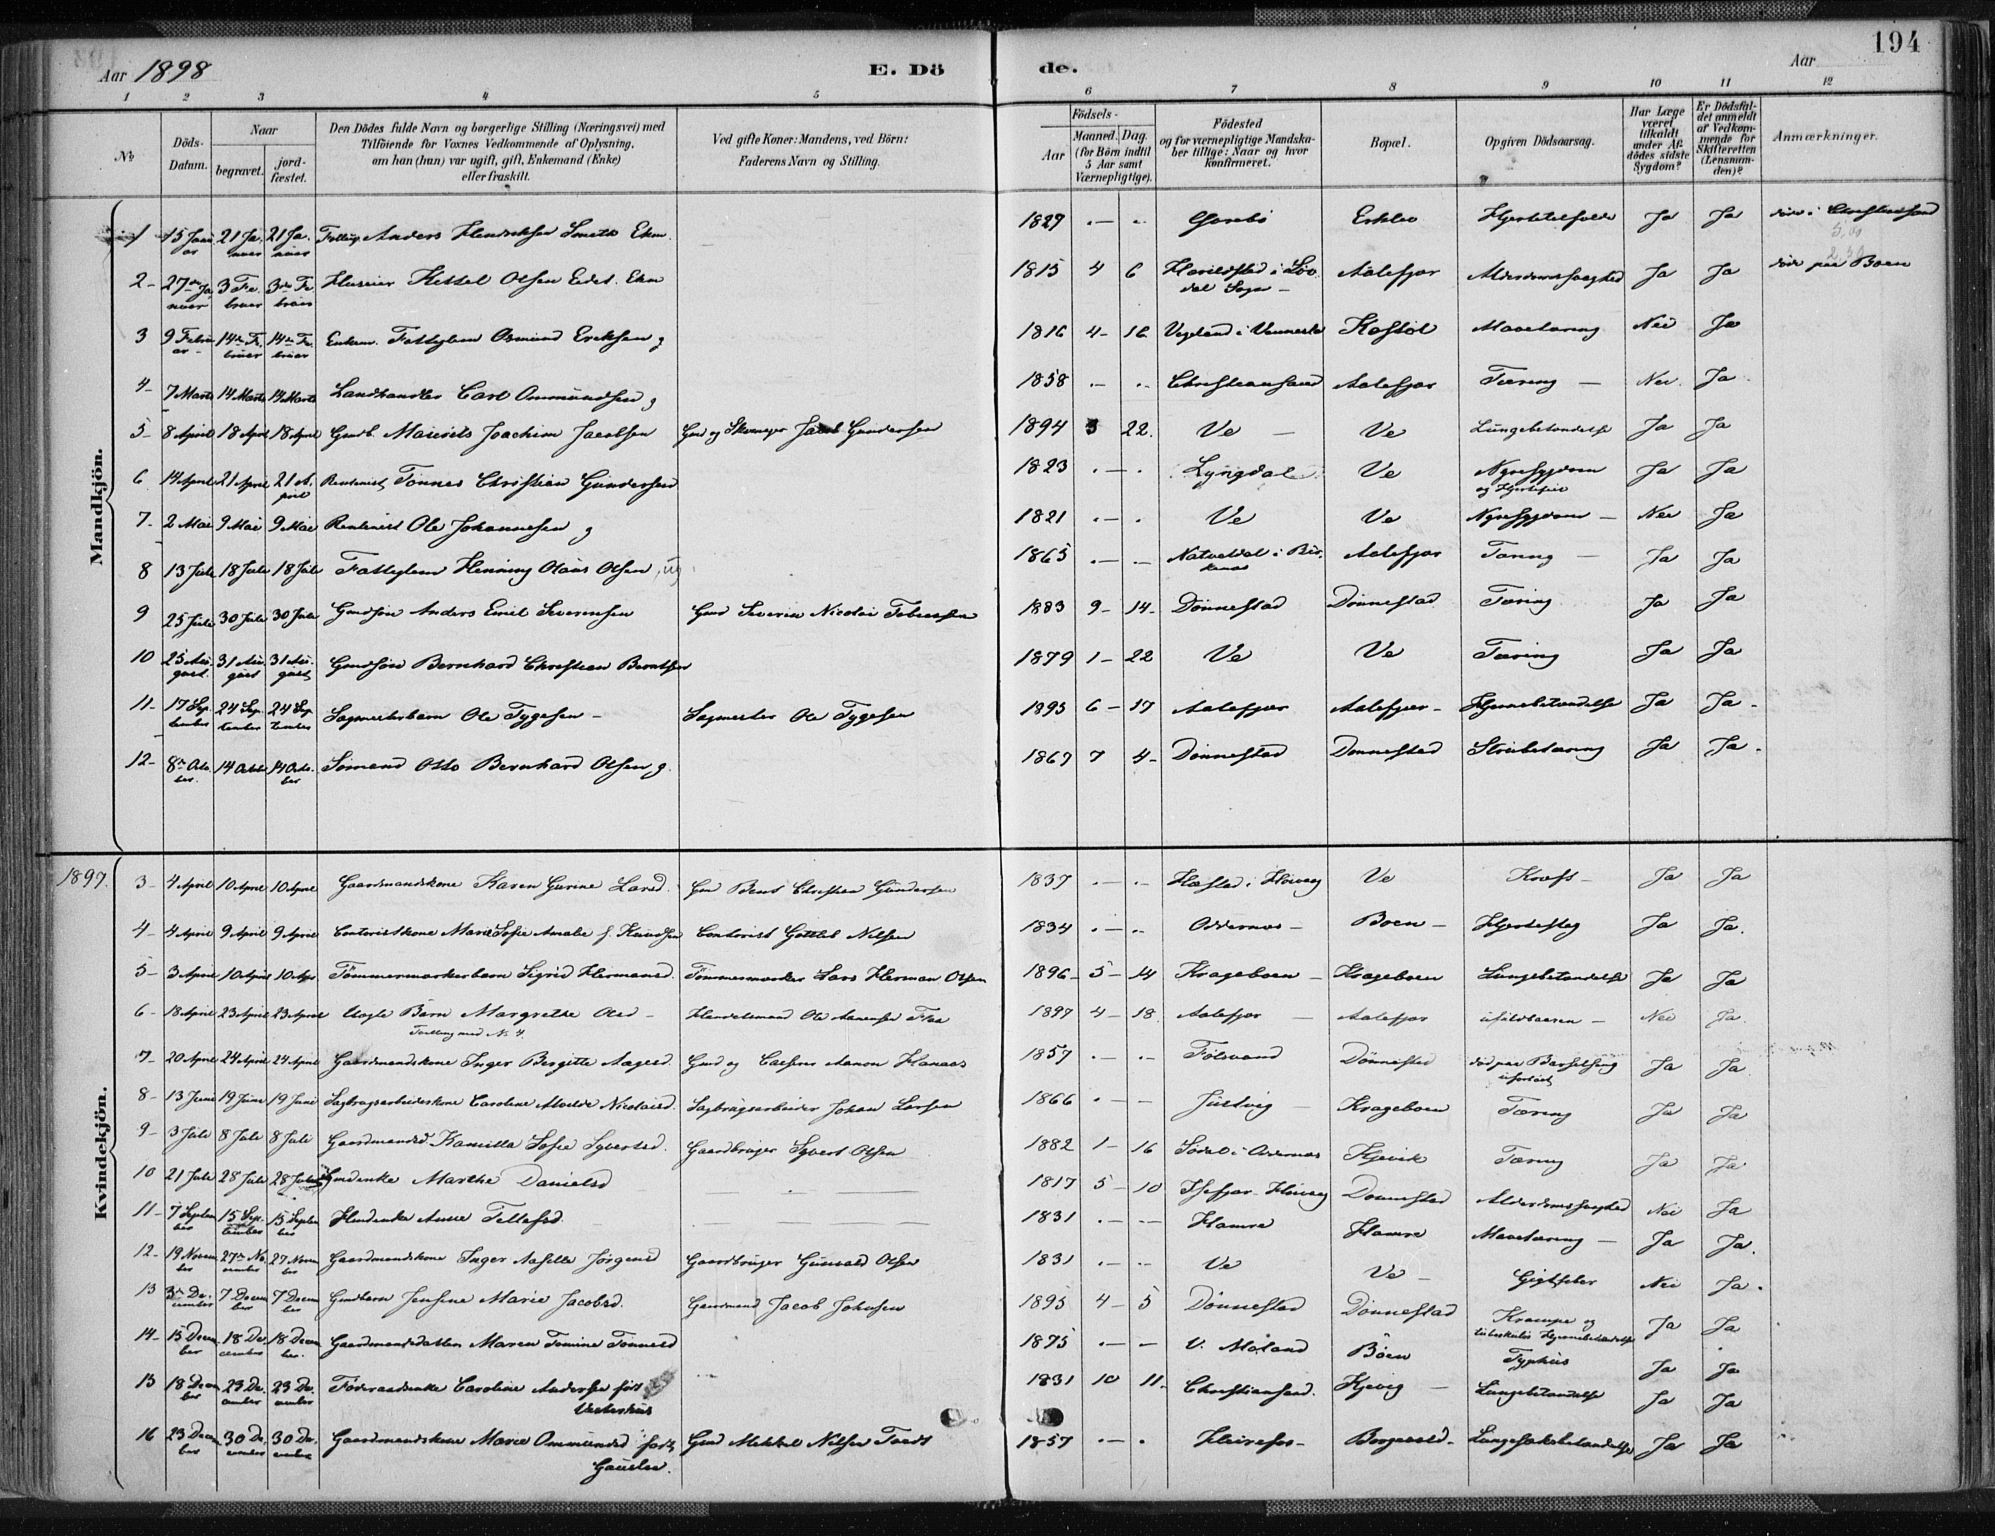 194
Aar 1898 E. Dö de. Aar
1 2 3 4 5 6 7 8 9 10 11 12
No Döds-Datum. Naar begravet. jordfæstet. Den Dödes fulde Navn og borgerlige Stilling (Næringsvei) med Tilföiende for Voxnes Vedkommende af Oplysning, om han (hun) var ugift, gift, Enkemand (Enke) eller fraskilt. Ved gifte Koner: Mandens, ved Börn: Faderens Navn og Stilling. Födsels- Aar Maaned. Dag. (for Börn indtil 5 Aar samt Værnepligtige). Födested og for værnepligtige Mandskaber tillige: Naar og hvor konfirmeret. Bopæl. Opgiven Dödsaarsag. Har Læge været tilkaldt under Afdödes sidste Sygdom? Er Dödsfaldet anmeldt af Vedkommende for Skifteretten (Lensmanden)? Anmærkninger.
Mandkjön.
1 15 Januar 21 Januar 21 Januar Anders Hendriksen 1827 Ja Ja död i Christiansand
2 27de Januar 3 Februar 3die Februar Kittel Olsen Eidet. Ekm 1815 4 6 Aalefjær Alderdomssvaghed Ja Ja död paa Boen
3 9 Februar 14de Februar 14de Februar Enkem. Fattiglem Osmund Eriksen 1816 4 16 Vegeland i Vennesla Mavetæring Nei Ja
4 7 Marts 14 Marts 14 Marts Landhandler Carl Ommundsen g 1858 Christiansand Aalefjær Tæring Nei Ja
5 8 April 18 April 18 April Gmdb. Joachim Jacobsen Gmd og Jacob Gundersen 1894 3 22 Ve Ve Lungebetændelse Ja Ja
6 14 April 21 April 21 April Rentenist Tönnes Christian Gundersen 1823 Lyngdal Ve Nyresygdom og Hjertefeil Ja Ja
7 2 Mai 9 Mai 9 Mai Rentenist Ole Johannesen g 1821 Ve Ve Nyresygdom Nei Ja
8 13 Juli 18 Juli 18 Juli Fattiglem Henning Olaus Olsen, ug 1865 i Birkenæs Aalefjær Tæring Ja Ja
9 25 Juli 30 Juli 30 Juli Gmdsön Anders Emil Severinsen Gmd Severin Nicolai Tobiassen 1883 9 14 Dönnestad Dönnestad Tæring Ja Ja
10 25 August 31 August 31 August Gmdsön Bernhard Christian Berntsen 1879 1 22 Ve Ve Tæring Ja Ja
11 17 September 24 September 24 September Sagmesterbarn Ole Tygesen Sagmester Ole Tygesen 1895 6 17 Aalefjær Aalefjær Hjernebetændelse Ja Ja
12 8de October 14 October 14 October Sömand Otto Bernhard Olsen g. 1869 7 4 Dönnestad Dönnestad Strubetæring Ja Ja
Kvindekjön.
1897. 3 4 April 10 April 10 April Gaardmandskone Karen Gurine Larsd. Gmd Bent Christian Gundersen 1837 i Höivåg Ve Kræft Ja Ja
4 4 April 9 April 9 April Contoristkone Marie Sofie Amalie f. Knudsen Contorist Gottleb Nilsen 1834 Oddernes Boen Hjerteslag Ja Ja
5 3 April 10 April 10 Apr. Tömmermærkerbarn Sigrid Hermansd. Tömmermærker Lars Herman Olsen 1896 5 14 Krageboen Krageboen Lungebetændelse Ja Ja
6 18 April 23 April 23 April Uægte Barn Margrethe Olsd Tvilling med No 4. Handelsmand Ole Aanensen 1897 4 18 Aalefjær Aalefjær ufuldbaaren Nei Ja
7 20 April 24 April 24 April Gaardmandskone Inger Bergitte Aagesd. Gmd og Aanon Hanaas 1857 Dönnestad död paa Barselseng uforlöst Ja Ja
8 13 Juni 19 Juni 19 Juni Sagbrugsarbeiderkone Caroline Alvilde Nicolaisd. Sagbrugsarbeider Johan Larsen 1866 Justvig Krageboen Tæring Ja Ja
9 3 Juli 8 Juli 8 Juli Gaardmandsd. Kamilla Sofie Syvertsd. Gaardbruger Syvert Olsen 1882 1 16 i Oddernes Kjevik Tæring Ja Ja
10 21 Juli 28 Juli 28 Juli Gmdenke Marthe Danielsd 1817 5 10 Isefjær Höivåg Dönnestad Alderdomssvaghed Nei Ja
11 7 September 15 September 15 September Anne Tellefsd. 1831 Hamre Hamre Mavetæring Ja Ja
12 19 November 27de November 27 November Gaardmandskone Inger Aaselle Jörgensd Gaardbruger Gunvald Olsen 1831 Ve Ve Gigtfeber Nei Ja
13 3de December 7 December 7 December Gmdbarn Jensine Marie Jacobsd. Gaardmand Jacob Johnsen 1895 4 5 Dönnestad Dönnestad Krampe og tuberkulös Hjernebetændelse Ja Ja
14 15 December 18 December 18 December Gaardmandsdatter Maren Tomine Tönnesd 1875 V. Moland Böen Typhus Ja Ja
15 18 December 23 December 23 December Föderaadsenke Caroline Andersen född Vesterhus 1831 10 11 Christiansand Kjevig Lungebetændelse Ja Ja
16 23 December 30 December 30 December Gaardmandskone Marie Ommundsd Gmd Mikkel Nilsen 1857 Lungesæksbetændelse Ja Ja